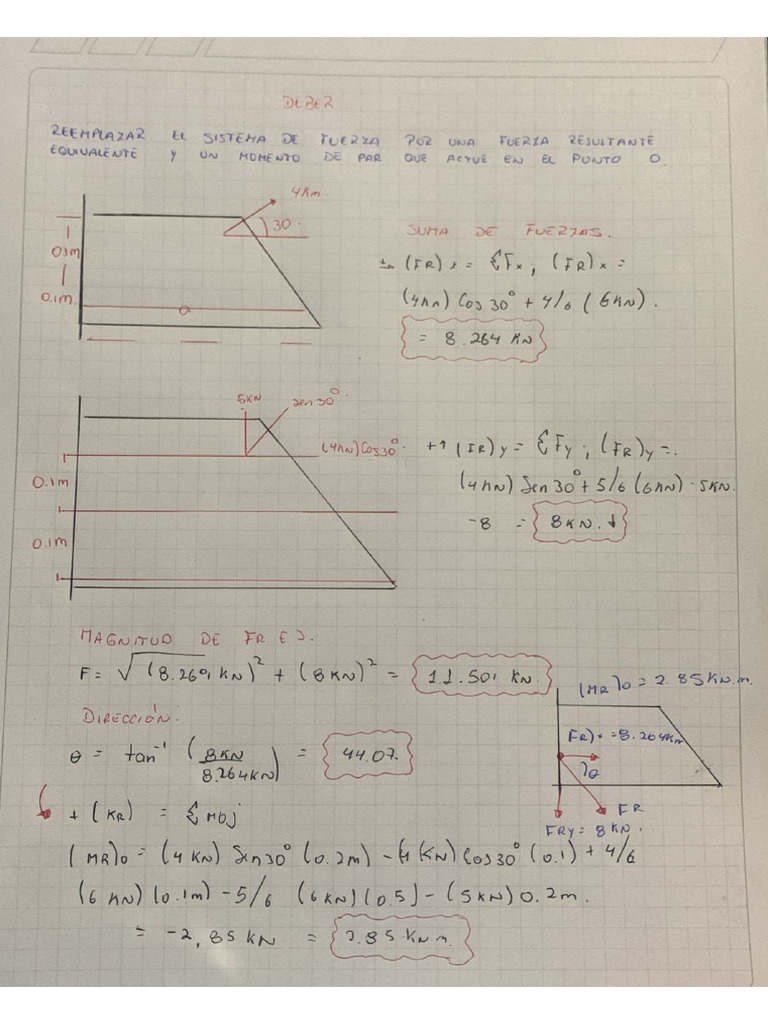 DEBER
REEMPLAZAR EL SISTEMA DE FUERZA POR UNA FUERZA RESULTANTE
EQUIVALENTE Y UN MOMENTO DE PAR QUE ACTUE EN EL PUNTO O.
4Km.
30.
0.1m
0.1m
SUMA DE FUERZAS.
(FR)x = ΣFx, (FR)x =
(4KN) Cos 30° + 4/6 (6KN).
= 8.264 KN
5KN
Sen 30°
(4KN)Cos30°
0.1m
0.1m
+↑ (FR)y = ΣFy; (FR)y =.
(4KN) Sen 30° + 5/6 (6KN) - 5KN.
-8 = 8KN. ↓
MAGNITUD DE FR ES.
F = √(8.264 KN)² + (8KN)² = 11.501 KN.
DIRECCIÓN:
θ = tan⁻¹ (8KN / 8.264KN) = 44.07.
(MR)o = 2.85KN.m.
FR)x = 8.264Km
θ
FR
FRy = 8KN.
+ (KR) = ΣMOj
(MR)o = (4KN) Sen30° (0.2m) - (4KN) Cos30° (0.1) + 4/6
(6KN) (0.1m) - 5/6 (6KN) (0.5) - (5KN) 0.2m.
= -2,85 KN = 2.85 KN.m.